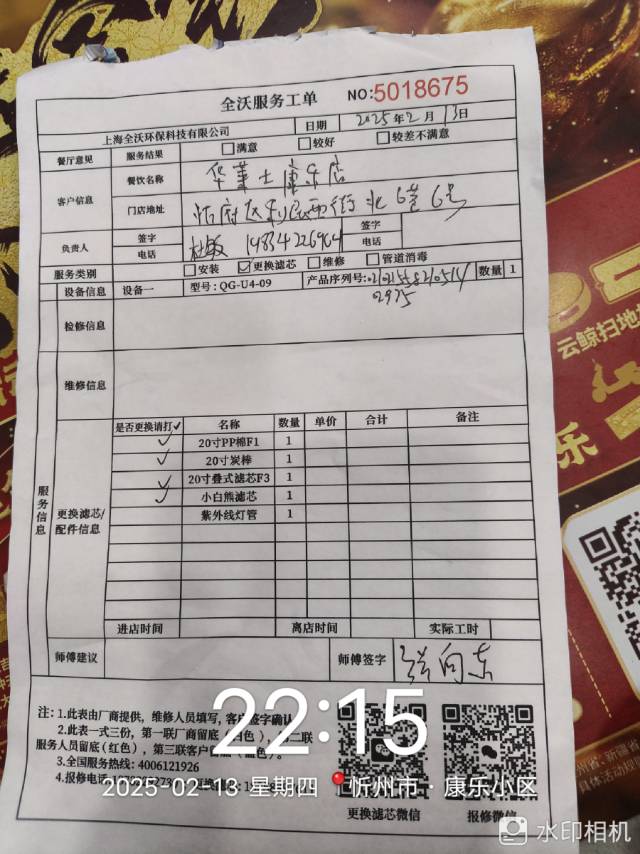 全沃服务工单 NO:5018675
上海全沃环保科技有限公司 日期 2025年2月13日
餐厅意见 服务结果 □满意 □较好 □较差不满意
客户信息 餐饮名称 华莱士康乐店
门店地址 忻府区利民西街北6巷6号
负责人 签字 电话 杜敏 签字 电话
服务类别 □安装 ☑更换滤芯 □维修 □管道消毒
设备信息 设备一 型号:QG-U4-09 产品序列号: 数量 1
2975
检修信息
维修信息
服务信息
更换滤芯/配件信息
是否更换请打✓ 名称 数量 单价 合计 备注
✓ 20寸PP棉F1 1
✓ 20寸炭棒 1
✓ 20寸叠式滤芯F3 1
✓ 小白熊滤芯 1
紫外线灯管 1
进店时间 离店时间 实际工时
师傅建议 师傅签字 张向东
注:1.此表由厂商提供,维修人员填写,客户签字确认
2.此表一式三份,第一联厂商留底(白色),第二联
服务人员留底(红色),第三联客户留底(蓝色)。
3.全国服务热线:4006121926
4.报修电话
更换滤芯微信 报修微信
22:15
2025-02-13 星期四 忻州市·康乐小区
水印相机
云鲸扫地
乐